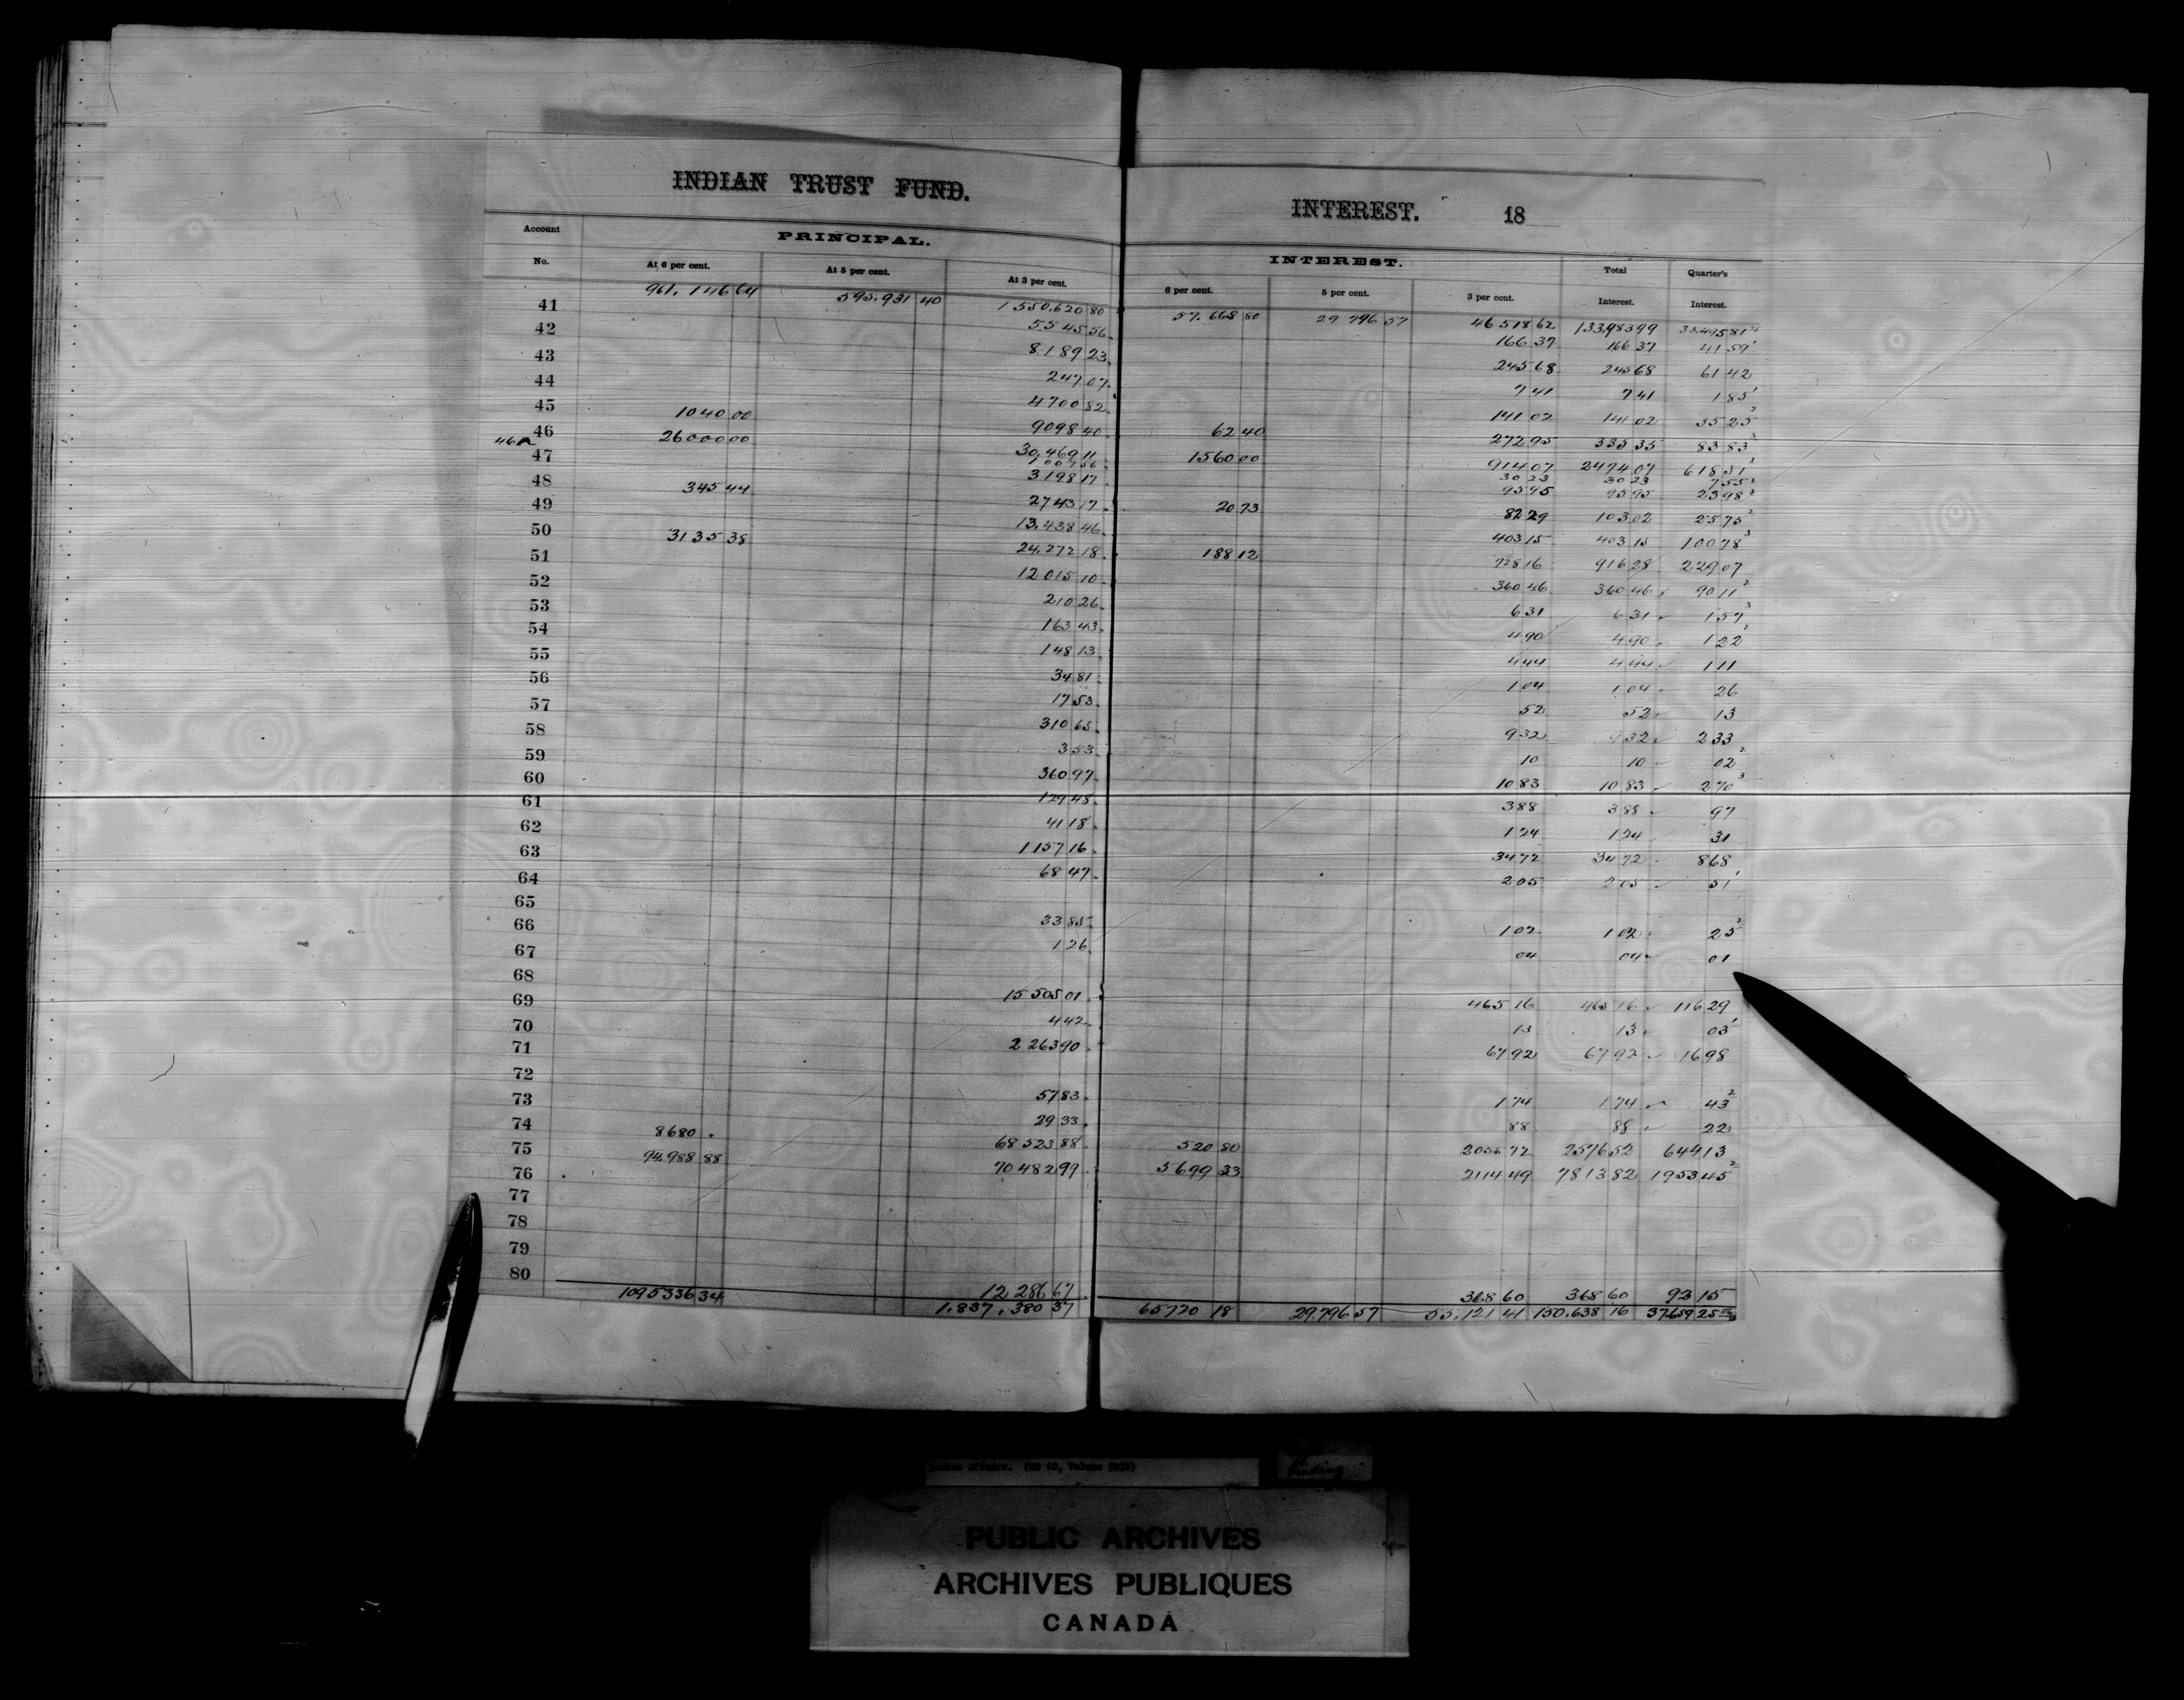 INDIAN TRUST FUND.
INTEREST. 18
Account No. PRINCIPAL. INTEREST. Total Interest. Quarter's Interest.
At 6 per cent. At 5 per cent. At 3 per cent. 6 per cent. 5 per cent. 3 per cent.
961,146 64 595,931 40 1 550,620 80 57,668 80 29 796 57 46 518 62 133,983 99 33,495 81
41 5545 56 166 37 166 37 41 59 1
42 8189 23 245 68 245 68 61 42
43 247 07 7 41 7 41 1 85 1
44 4700 82 141 02 141 02 35 25 2
45 1040 00 9098 40 62 40 272 95 335 35 83 83 3
46 26000 00 30,469 11 1560 00 914 07 2474 07 618 51
46A 1007 56 30 23 30 23 7 55 3
47 3198 17 95 95 95 95 23 98 3
48 345 44 2743 17 20 73 82 29 103 02 25 75 2
49 13,438 46 403 15 403 15 100 78 3
50 3135 38 24,272 18 188 12 728 16 916 28 229 07
51 12015 10 360 46 360 46 90 11 2
52 210 26 6 31 6 31 1 57 3
53 163 43 4 90 4 90 1 22 2
54 148 13 4 44 4 44 1 11
55 34 81 1 04 1 04 26
56 17 53 52 52 13
57 310 65 9 32 9 32 2 33
58 3 53 10 10 02 2
59 360 97 10 83 10 83 2 70 3
60 129 48 3 88 3 88 97
61 41 18 1 24 1 24 31
62 1157 16 34 72 34 72 8 68
63 68 47 2 05 2 05 51 1
64
65 33 85 1 02 1 02 25 2
66 1 26 04 04 01
67
68 15 505 01 465 16 465 16 116 29
69 4 42 13 13 03 1
70 2 263 90 67 92 67 92 16 98
71
72 57 83 1 74 1 74 43 2
73 29 33 88 88 22
74 8680 . 68 523 88 520 80 2055 72 2576 52 644 13
75 94,988 88 70 482 99 5 699 33 2114 49 7813 82 1953 45 2
76
77
78
79
80 12 286 67 368 60 368 60 92 15
1095336 34 1,837,380 37 65720 18 29,796 57 55,121 41 150,638 16 37,659 25
Indian Affairs. (RG 10, Volume 5932)
PUBLIC ARCHIVES
ARCHIVES PUBLIQUES
CANADA